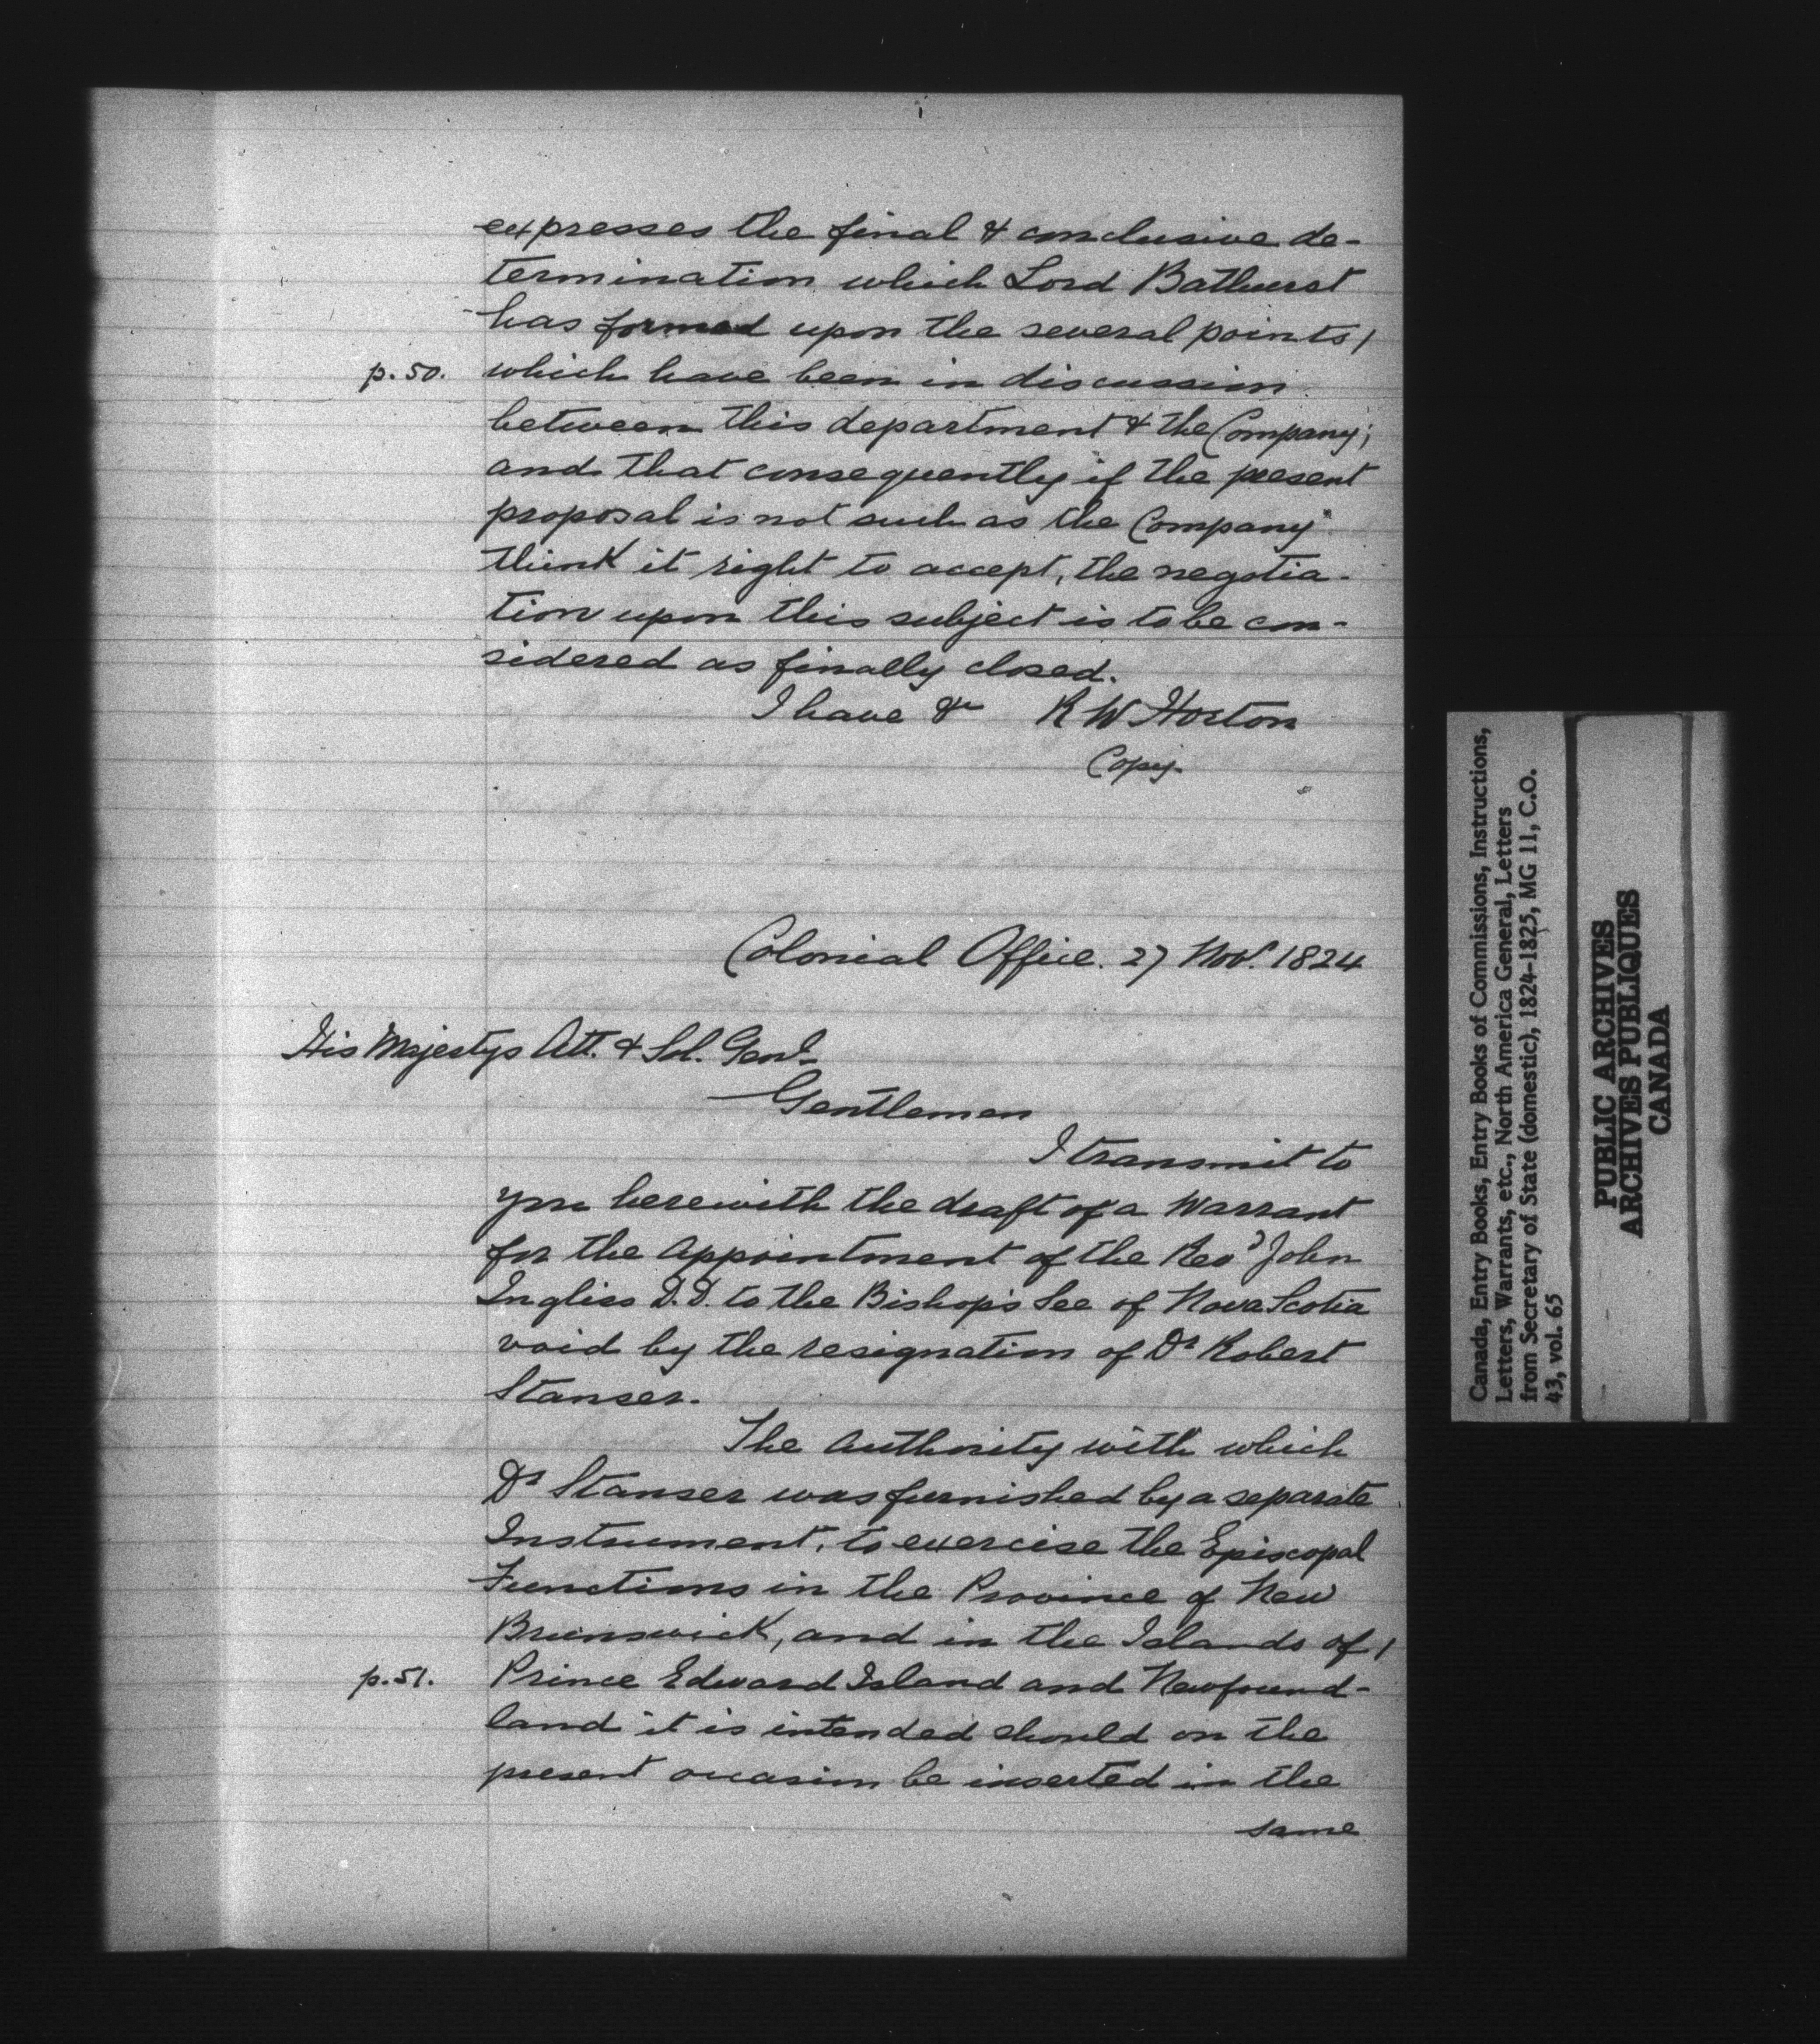 expresses the final & conclusive de-
termination which Lord Bathurst
has formed upon the several points /
p. 50. which have been in discussion
between this department & the Company;
and that consequently if the present
proposal is not such as the Company
think it right to accept, the negotia-
tion upon this subject is to be con-
sidered as finally closed.
I have &c R W Horton
Copy.
Colonial Office. 27 Nov. 1824
His Majestys Att. & Sol. Genl.
Gentlemen
I transmit to
you herewith the draft of a Warrant
for the Appointment of the Revd John
Ingliss D.D. to the Bishop's See of Nova Scotia
void by the resignation of Dr Robert
Stanser.
The Authority with which
Dr Stanser was furnished by a separate
Instrument, to exercise the Episcopal
Functions in the Province of New
Brunswick, and in the Islands of /
p. 51. Prince Edward Island and Newfound-
land it is intended should on the
present occasion be inserted in the
same
Canada, Entry Books, Entry Books of Commissions, Instructions,
Letters, Warrants, etc., North America General, Letters
from Secretary of State (domestic), 1824-1825, MG 11, C.O.
43, vol. 65
PUBLIC ARCHIVES
ARCHIVES PUBLIQUES
CANADA